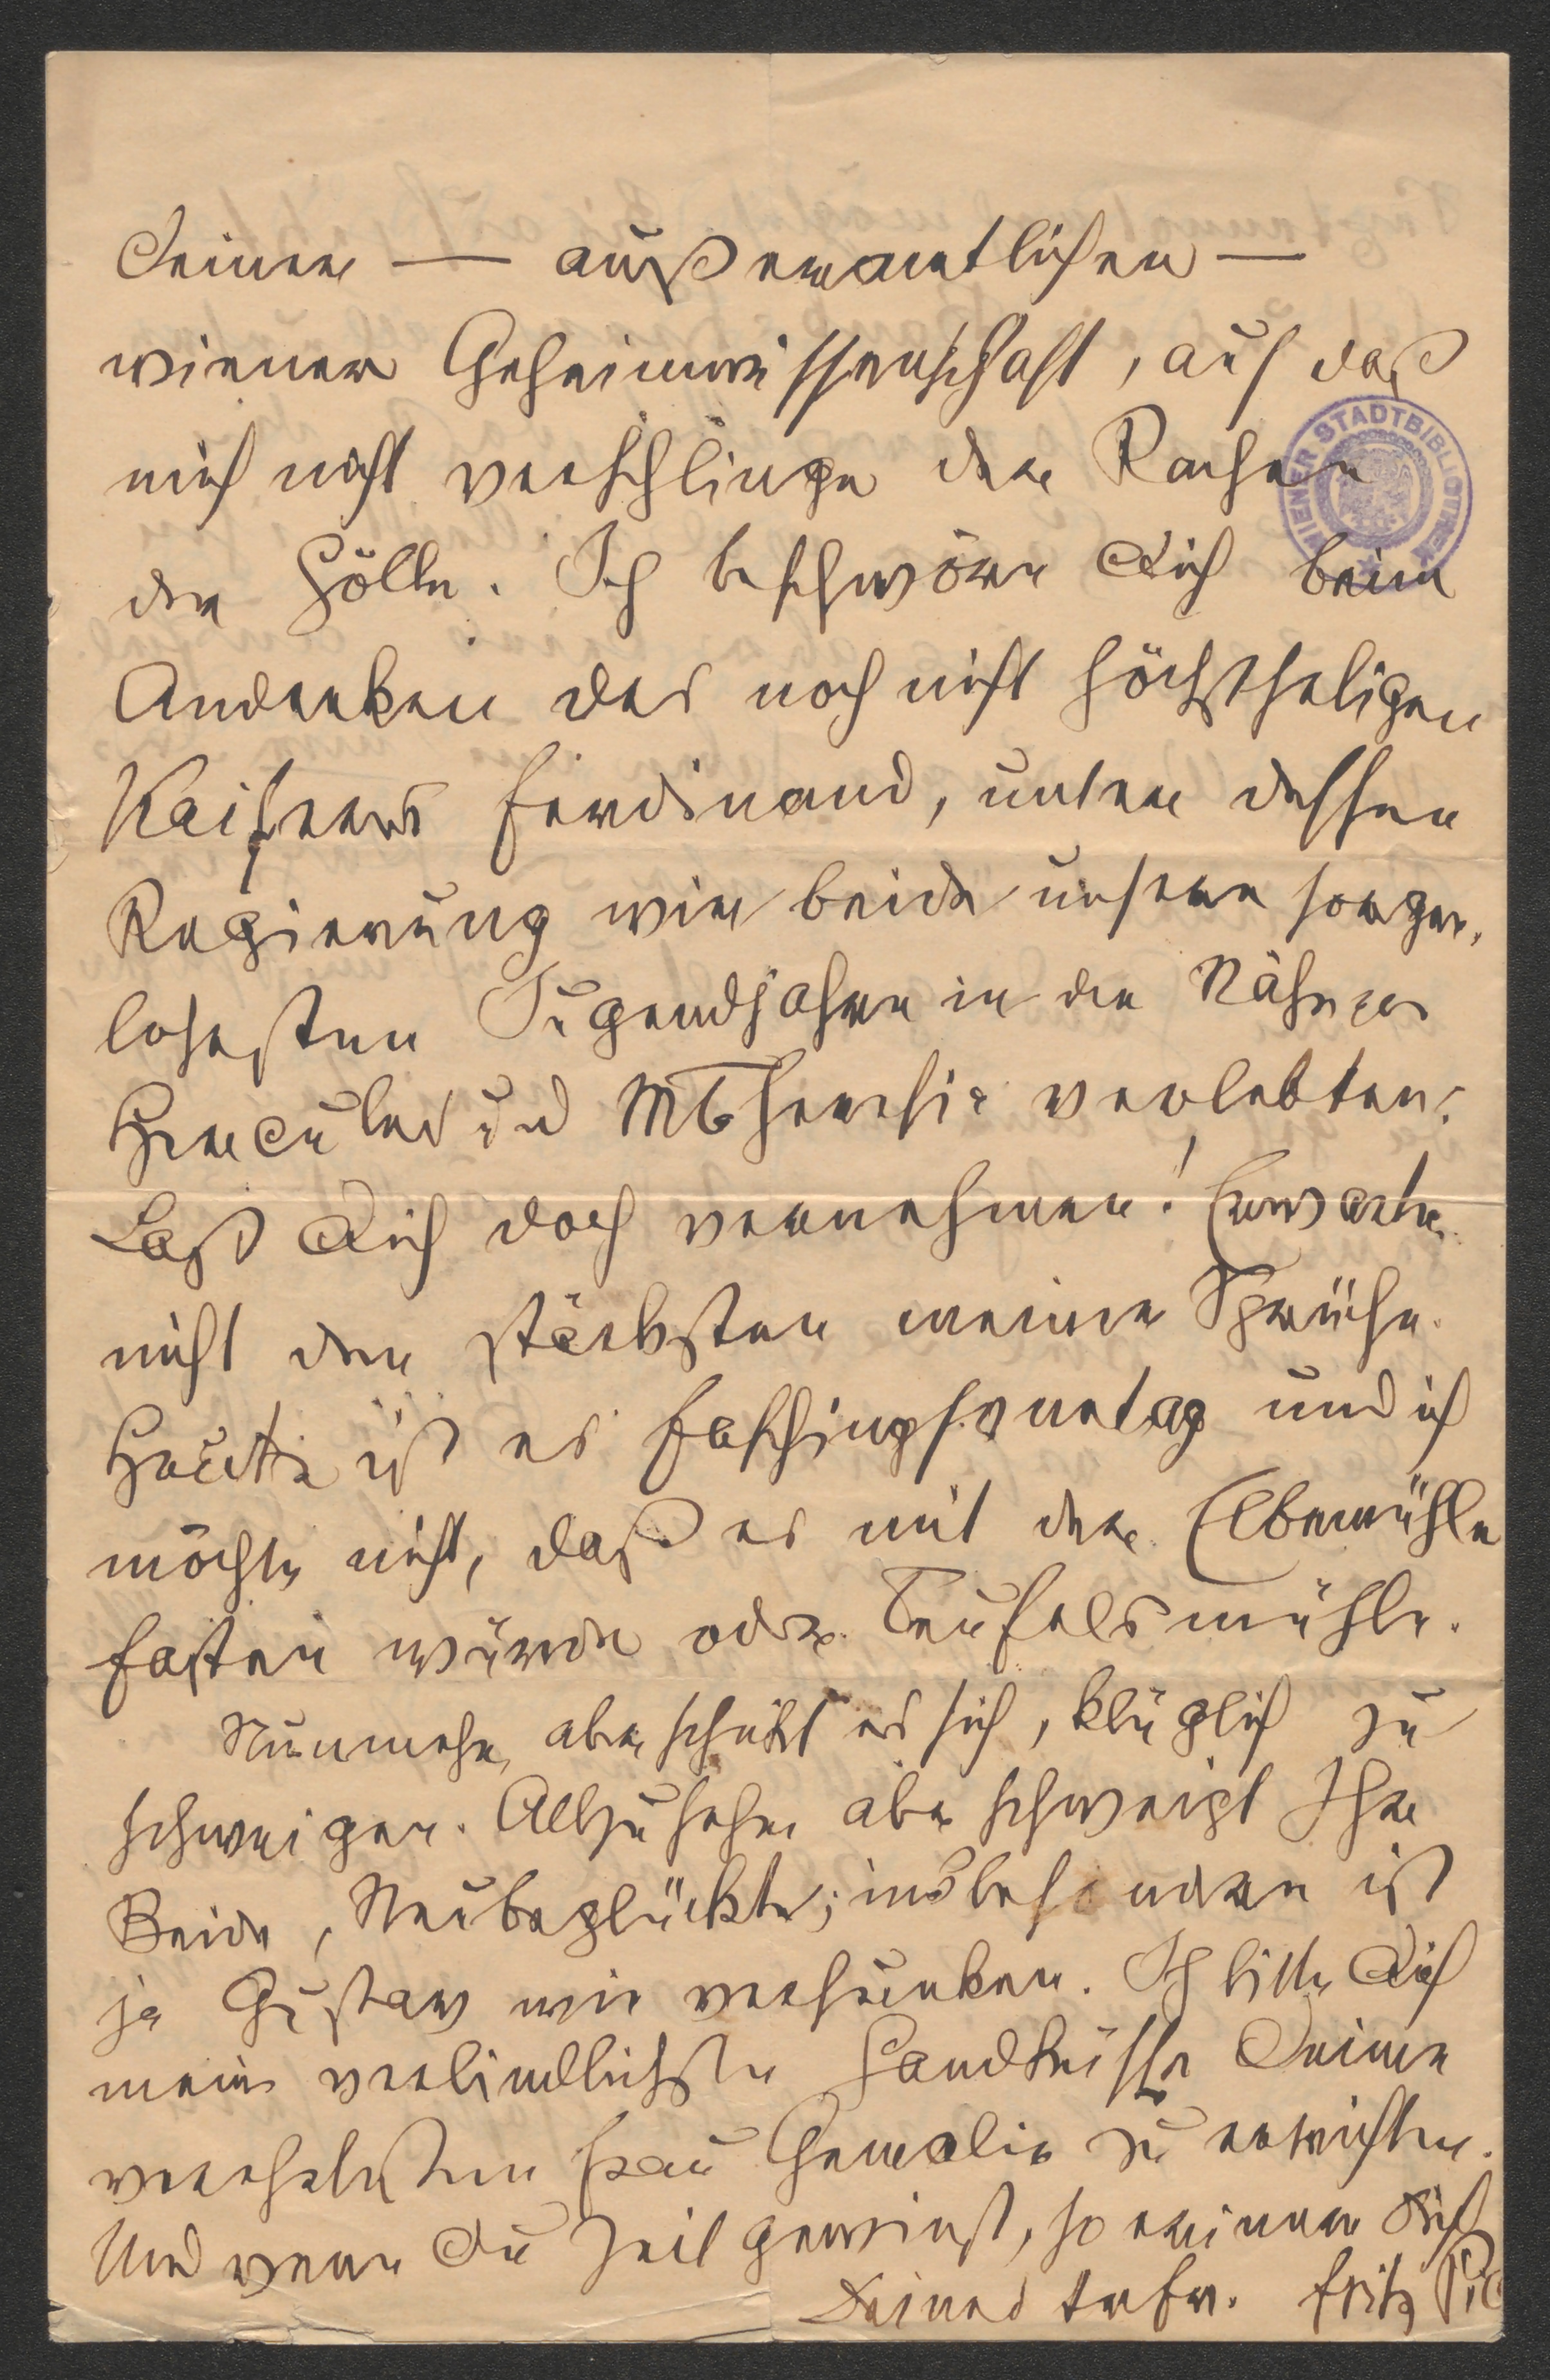 Deiner — außeramtlichen —
wiener Geheimwissenschaft, auf daß
mich nicht verschlinge der Rachen
der Hölle. Ich beschwöre Dich beim
Andenken des noch nicht höchstseligen
Kaisers Ferdinand, unter dessen
Regierung wir beide unsere sorgen-
losesten Jugendjahre in der Nähe
Hercules und MTheresia verlebten:
Laß Dich doch vernehmen! Erwarte
nicht den stärksten meiner Sprüche.
Heute ist es Faschingsonntag und ich
möchte nicht, daß es mit der Elbemühle
Fasten würde oder Teufelsmühle.
Nunmehr aber schickt es sich, klüglich zu
schweigen. Allzusehr aber schweigt Ihr
Beide, Neubeglückte; insbesondere ist
ja Gustav mir versunken. Ich bitte Dich
meine verbindlichsten Handküsse Deiner
verehrtesten Frau Gemalin zu entrichten.
Und wenn Du Zeit gewinst, so erinnere Dich
Deines Fritz
WIENER STADTBIBLIOTHEK